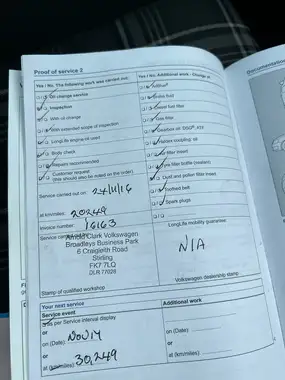 Proof of service 2
Yes / No, The following work was carried out:
Oil change service
Inspection
With oil change
With extended scope of inspection
LongLife engine oil used
Body check
Repairs recommended
Customer request
(this should also be noted on the order)
Service carried out on: 24/11/16
at km/miles: 20249
Invoice number: 16163
Arnold Clark Volkswagen
Broadleys Business Park
6 Craigleith Road
Stirling
FK7 7LQ
DLR 77028
Stamp of qualified workshop
Yes / No, Additional work - Change of
Brake fluid
Diesel fuel filter
Gearbox oil:
Haldex coupling: oil
Air filter insert
Tyre filler bottle (sealant)
Dust and pollen filter insert
Toothed belt
Spark plugs
LongLife mobility guarantee
N/A
Volkswagen dealership stamp
Your next service
Service event
as per Service interval display
or
on (Date): Nov 17
or
at (km/miles): 30,249
Additional work
on (Date):
or
at (km/miles):